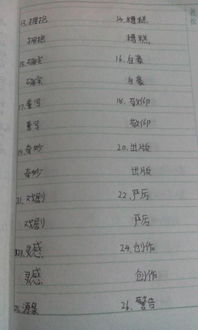 13.拥抱 14.糟糕
拥抱 糟糕
15.确实 16.自豪
确实 自豪
17.重写 18.敬仰
重写 敬仰
19.奇妙 20.出版
奇妙 出版
21.戏剧 22.严厉
戏剧 严厉
23.灵感 24.创作
灵感 创作
25.源泉 26.警告